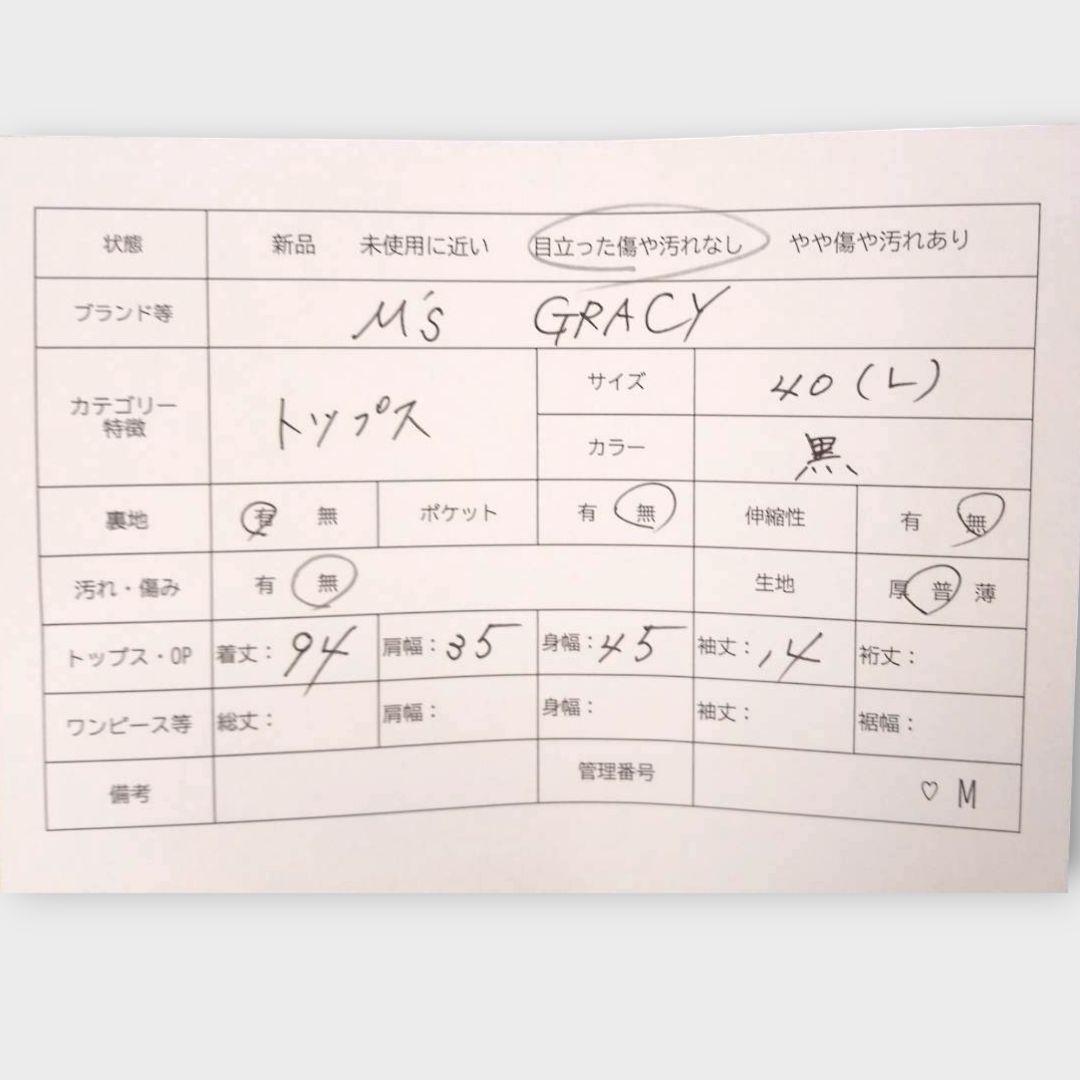 状態 新品 未使用に近い 目立った傷や汚れなし やや傷や汚れあり
ブランド等 M's GRACY
カテゴリー 特徴 トップス サイズ 40(L)
カラー 黒
裏地 有 無 ポケット 有 無 伸縮性 有 無
汚れ・傷み 有 無 生地 厚 普 薄
トップス・OP 着丈:94 肩幅:35 身幅:45 袖丈:14 裄丈:
ワンピース等 総丈: 肩幅: 身幅: 袖丈: 裾幅:
備考 管理番号 ♡ M